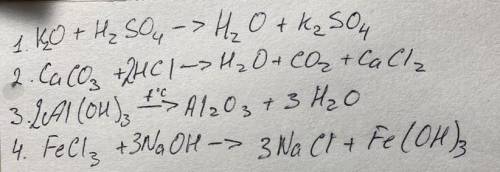 1. K₂O + H₂SO₄ —> H₂O + K₂SO₄
2. CaCO₃ + 2HCl —> H₂O + CO₂ + CaCl₂
3. 2Al(OH)₃ —t°C—> Al₂O₃ + 3H₂O
4. FeCl₃ + 3NaOH —> 3NaCl + Fe(OH)₃